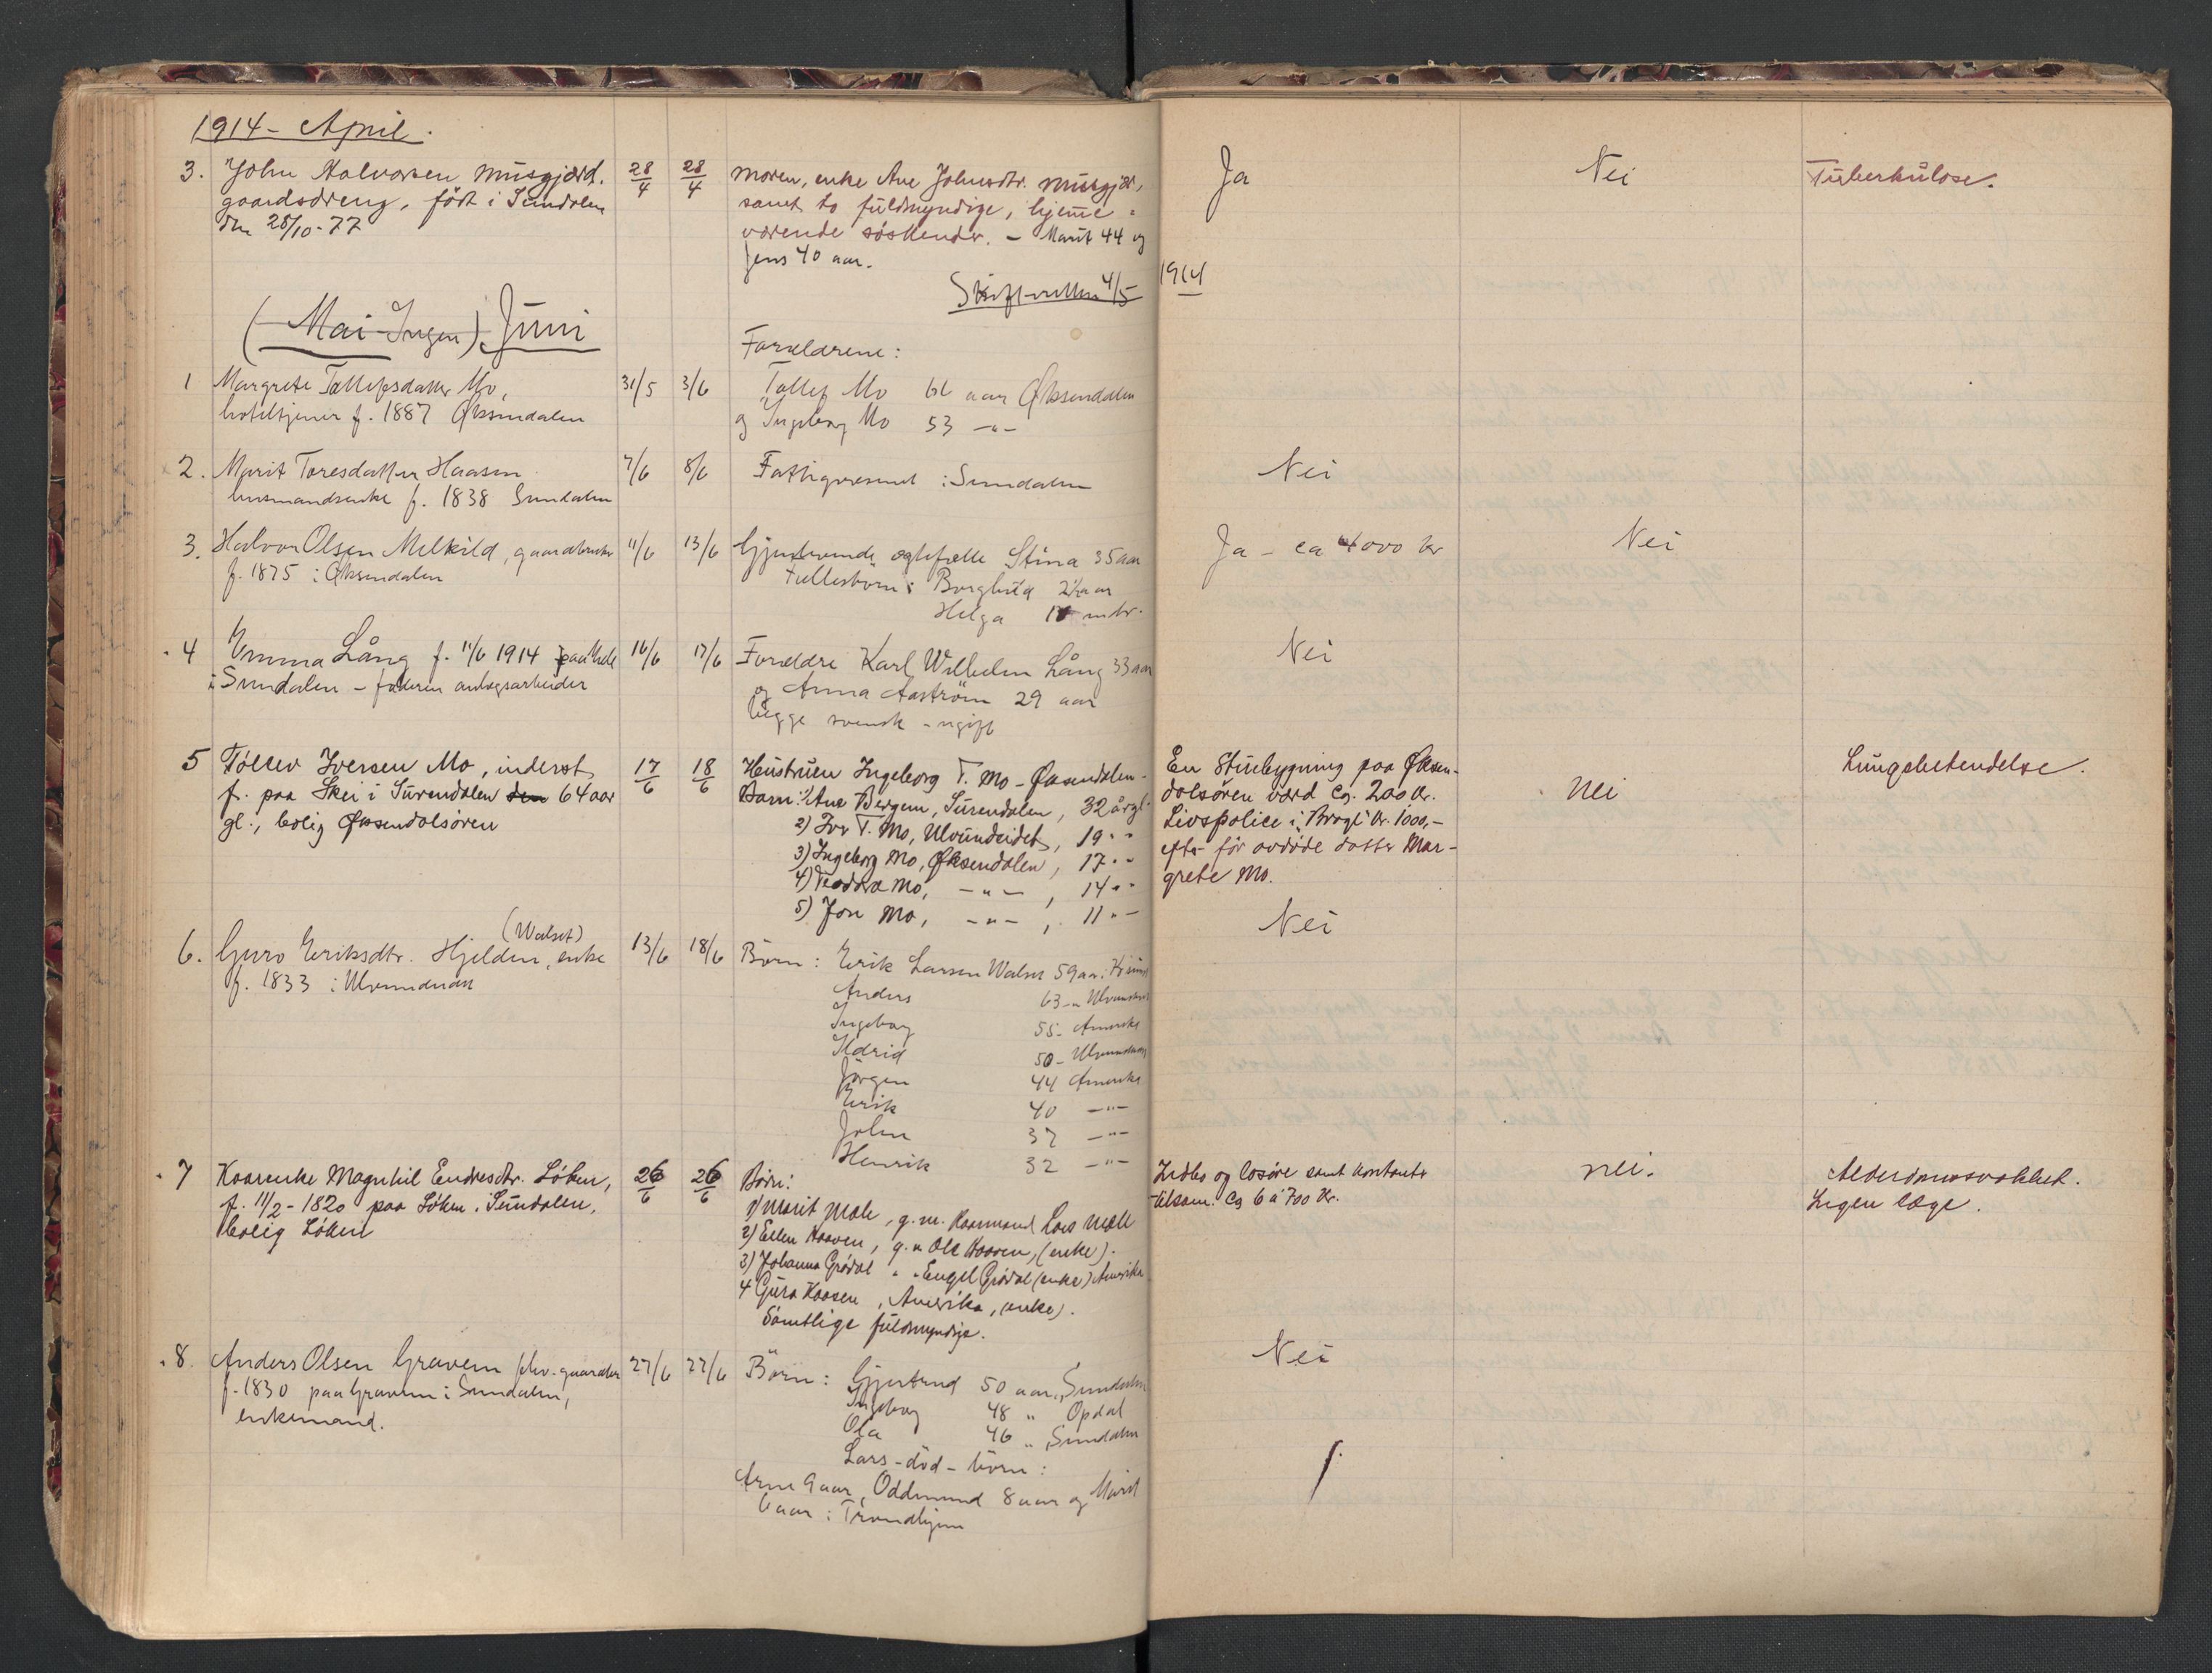 1914 - April.
3. John Halvorsen Musgjerd. 28/4 28/4 Moren, enke Ane Johnsdtr. Musgjær, Ja Nei Tuberkulose.
gaardsdreng, født i Sundalen samt to fuldmyndige, hjeme=
den 28/10-77 værende søskender. - Marit 44 og
Jens 40 aar.
Skifteretten 4/5 1914
(Mai - Ingen) Juni
Forældrene:
1 Margrete Tøllefsdatter Mo, 31/5 3/6 Tøllef Mo 64 aar Øksendalen
hoteltjener f. 1887 Øksendalen og Ingeborg Mo 53 -"-
2. Marit Toresdatter Haasen 7/6 8/6 Fattigvæsenet i Sundalen Nei
husmandsenke f. 1838 Sundalen
3. Halvor Olsen Melkild, gaardbruker 11/6 13/6 Gjenlevende ægtefælle Stina 35 aar Ja - ca 4000 kr Nei
f. 1875 i Øksendalen Fællesbørn: Borghild 2½ aar
Helga mdr.
4 Emma Lång f. 11/6 1914 paa 16/6 17/6 Forældre Karl Wilhelm Lång 33 aar Nei
i Sundalen - faderen anlægsarbeider og Anna Aaström 29 aar
begge svensk - ugift
5 Tøllev Iversen Mo, inderst, 17/6 18/6 Hustruen Ingeborg T. Mo - Øksendalen - En Stuebygning paa Øksen- Nei Lungebetendelse.
f. paa Skei i Surendalen den 64 aar Barn: 1/ Ane Bergem, Surendalen, 32 år gl. dalsøren værd Ca. 200 Kr.
gl., bolig Øksendalsøren 2) Iver T. Mo, Ulvundeidet, 19 " " Livspolice i "Brage" kr. 1000,-
3) Ingeborg Mo, Øksendalen, 17 " " efter før avdøde datter Mar-
4) Teodora Mo, -"-, 14 " " grete Mo.
5) Jon Mo, -"-, 11 " -
(Walset)
6. Guro Eriksdtr. Hjelden, enke 13/6 18/6 Børn: Erik Larsen Walset 59 aar. Nei
f. 1833 i Ulvundeidet Anders 63 -"
Ingeborg 55 - Amerika
Ildrid 50 - Ulvundeidet
Jörgen 44 Amerika
Erik 40 -"-
John 37 -"-
Henrik 32 -"-
7 Kaarenke Magnhil Endresdtr. Løken, 26/6 26/6 Børn: Indbo og løsøre samt kontanter nei. Alderdomssvakhet.
f. 11/2 - 1820 paa Løken i Sundalen, 1/ Marit Mæle, g. m. Kaarmand Lars Mæle tilsam. Ca 6 à 700 Kr. Ingen læge.
bolig Løken 2) Ellen Hoaven, g. m Ole Hoaven, (enke).
3) Johanna Grødal " " Engel Grødal (enke) Amerika
4 Guro Haasen, Amerika, (enke).
Samtlige fuldmyndige.
8. Anders Olsen Gravem 27/6 27/6 Børn: Gjertrud 50 aar, Sundalen Nei
f. 1830 paa Gravem i Sundalen, Ingeborg 48 " Opdal
enkemand. Ola 46 " Sundalen
Lars - död - börn:
Arne 9 aar, Oddmund 8 aar og Marit
6 aar i Trondhjem